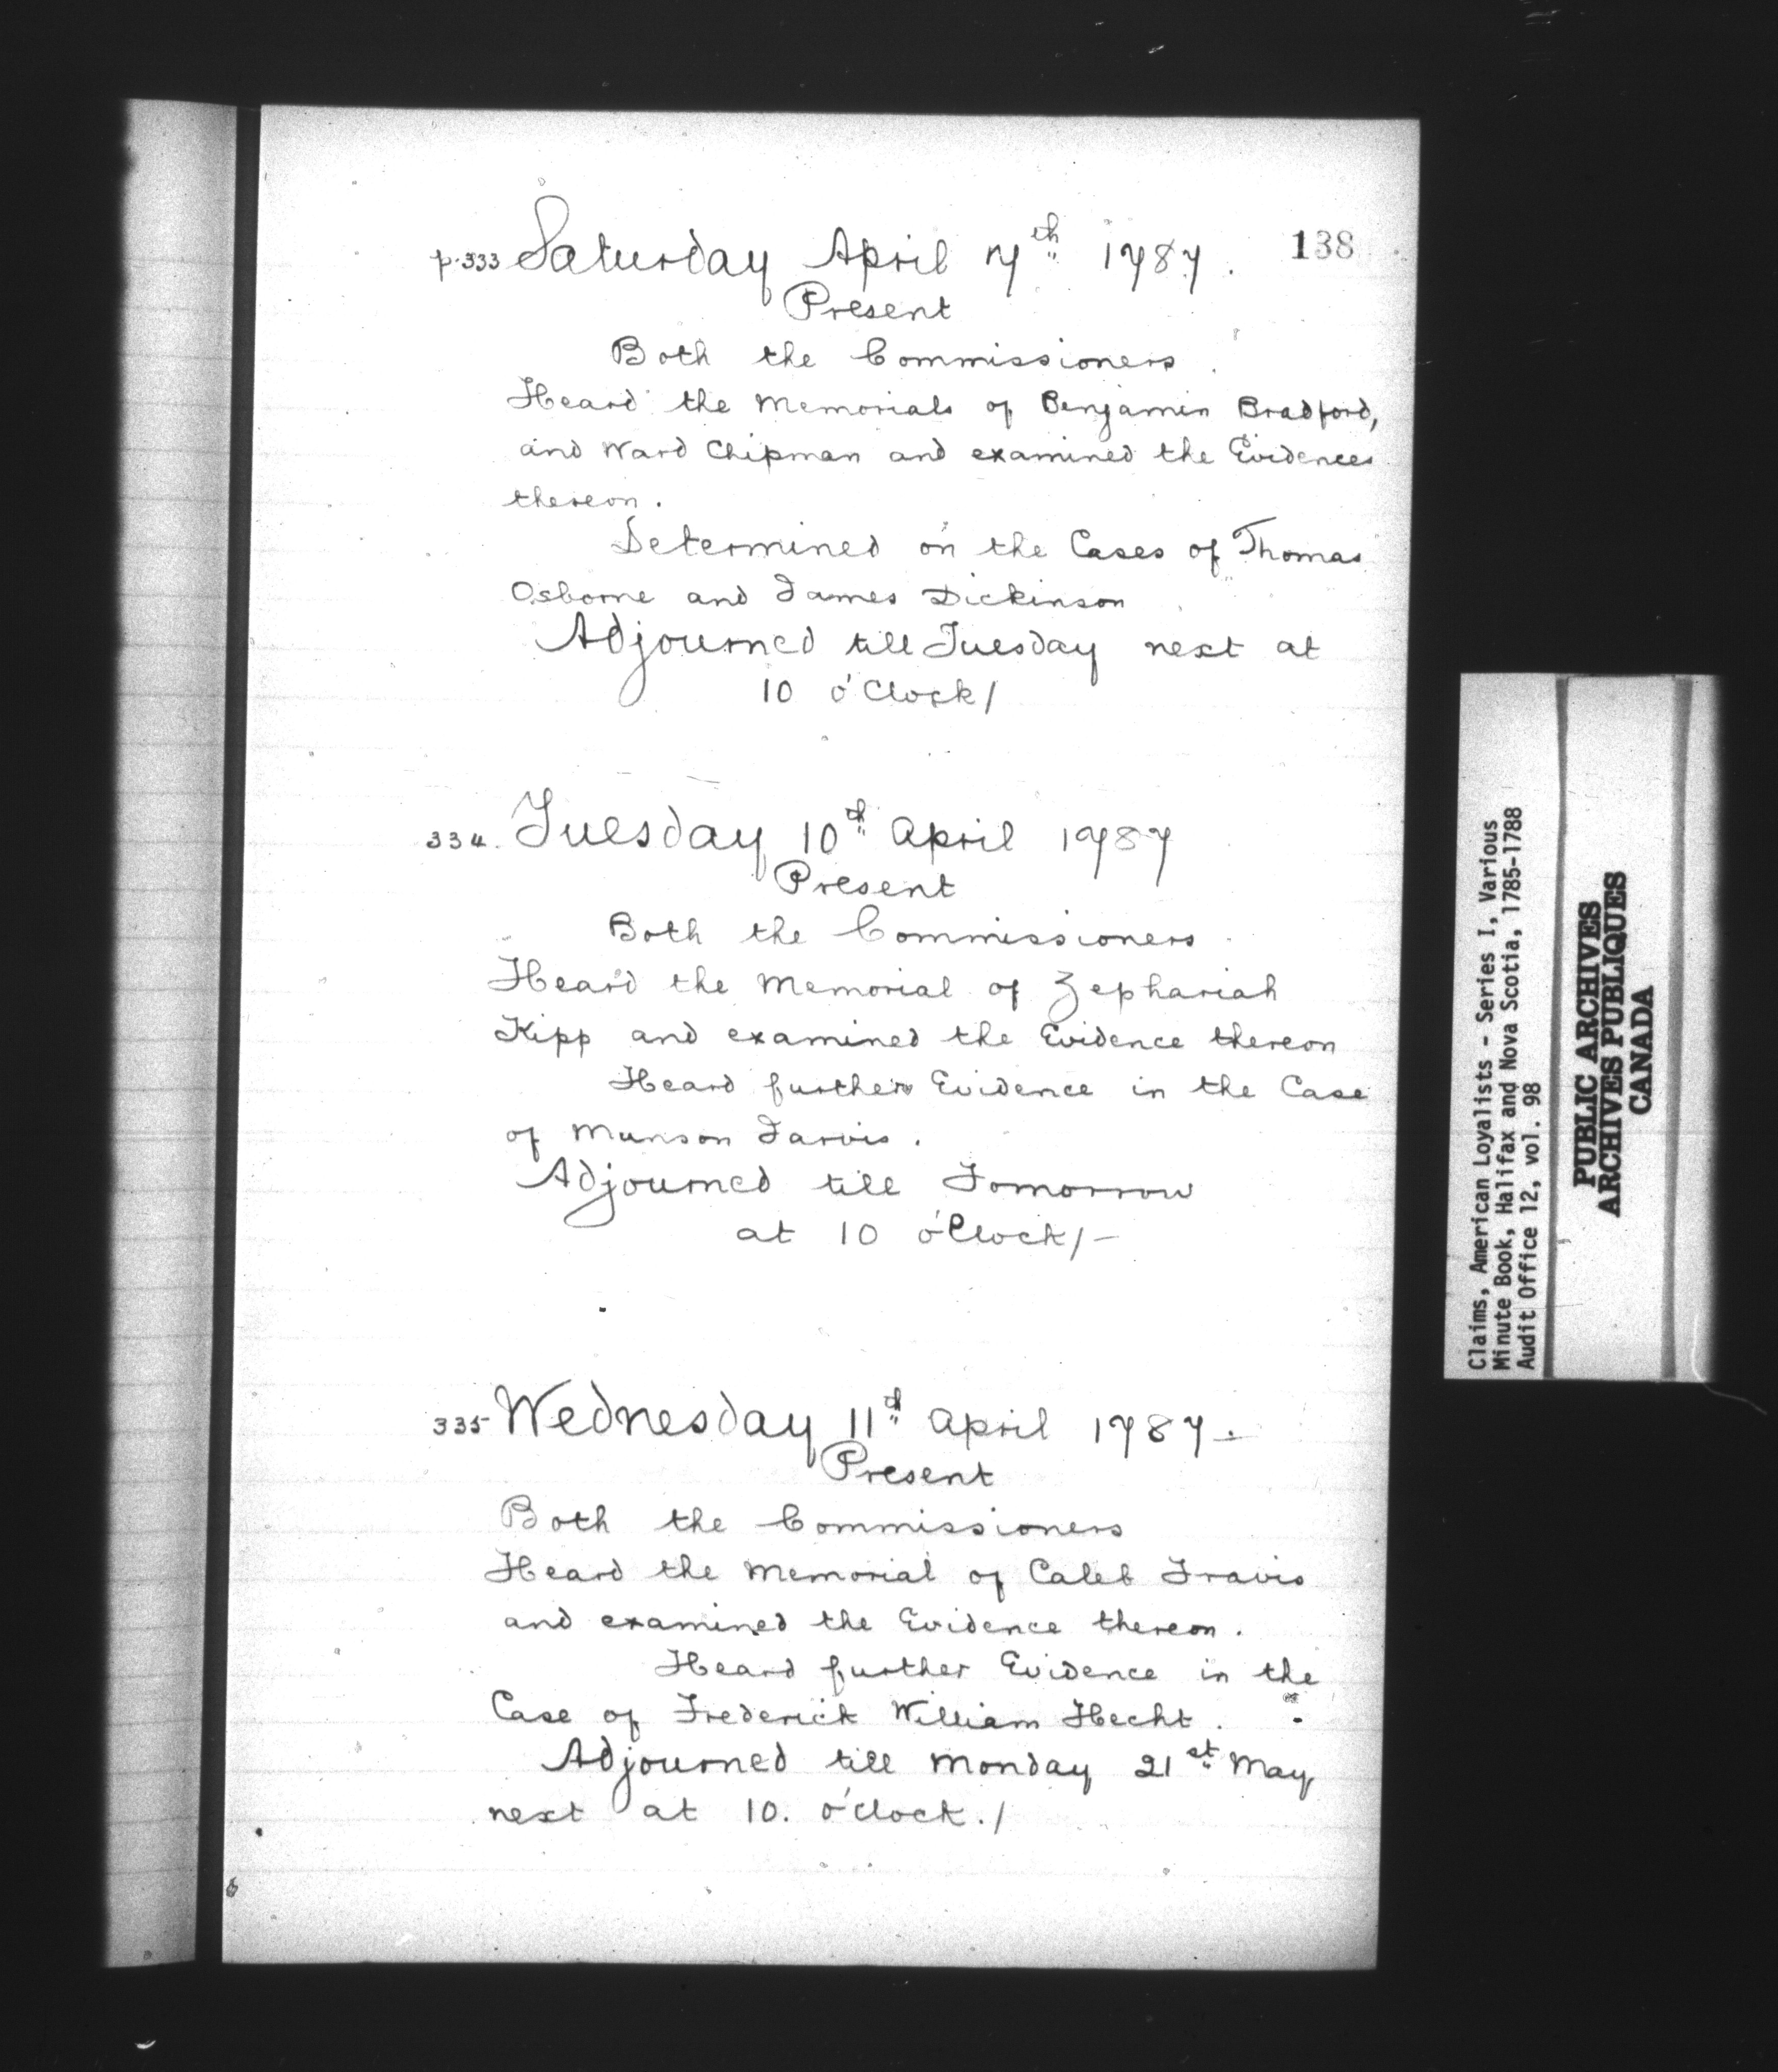 138
p.333 Saturday April 7th 1787.
Present
Both the Commissioners.
Heard the Memorials of Benjamin Bradford,
and Ward Chipman and examined the Evidences
thereon.
Determined on the Cases of Thomas
Osborne and James Dickinson
Adjourned till Tuesday next at
10 o'Clock/
334. Tuesday 10th April 1787
Present
Both the Commissioners
Heard the Memorial of Zephariah
Kipp and examined the Evidence thereon
Heard further Evidence in the Case
of Munson Jarvis.
Adjourned till Tomorrow
at 10 o'Clock/-
335 Wednesday 11th April 1787.
Present
Both the Commissioners
Heard the Memorial of Caleb Travis
and examined the Evidence thereon.
Heard further Evidence in the
Case of Frederick William Hecht.
Adjourned till Monday 21st May
next at 10. o'clock./
Claims, American Loyalists - Series I, Various
Minute Book, Halifax and Nova Scotia, 1785-1788
Audit Office 12, vol. 98
PUBLIC ARCHIVES
ARCHIVES PUBLIQUES
CANADA